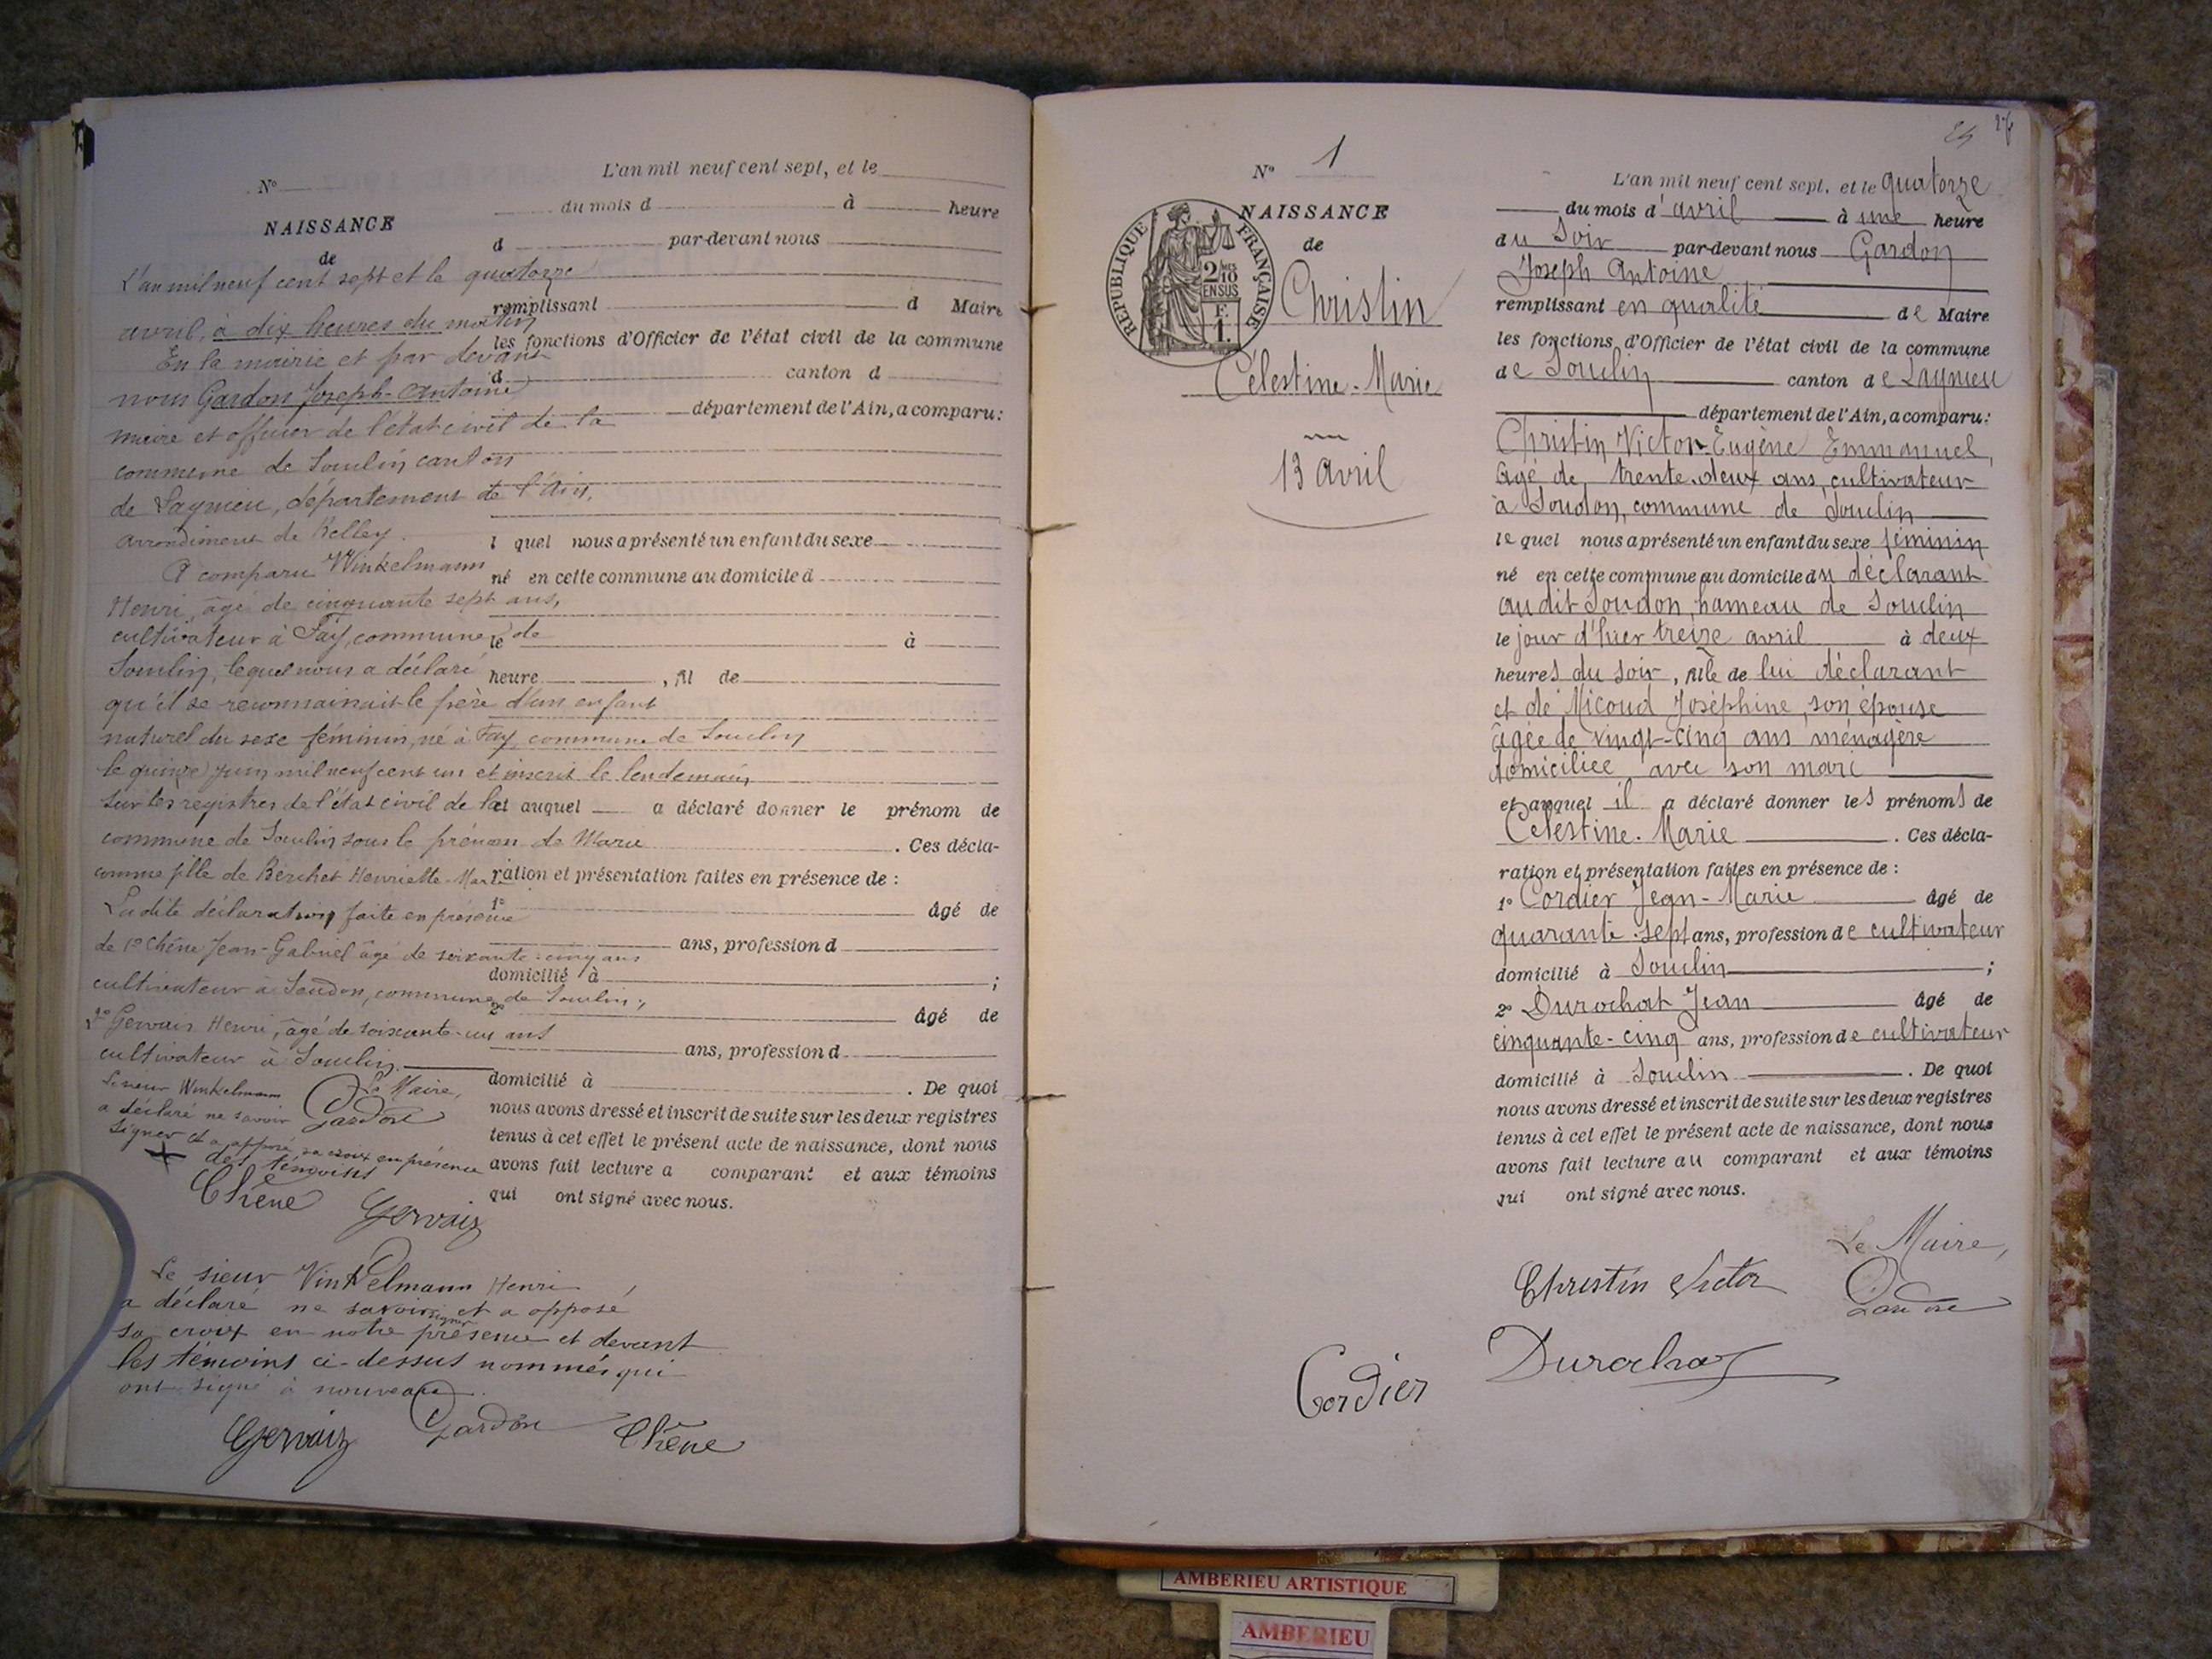 N°
NAISSANCE
de
L'an mil neuf cent sept, et le
du mois d à heure
d par-devant nous
remplissant d Maire
les fonctions d'Officier de l'état civil de la commune
d canton d
département de l'Ain, a comparu:
l quel nous a présenté un enfant du sexe
né en cette commune au domicile d
le à
heure , fil de
et auquel a déclaré donner le prénom de
. Ces décla-
ration et présentation faites en présence de :
1° âgé de
ans, profession d
domicilié à ;
2° âgé de
ans, profession d
domicilié à . De quoi
nous avons dressé et inscrit de suite sur les deux registres
tenus à cet effet le présent acte de naissance, dont nous
avons fait lecture a comparant et aux témoins
qui ont signé avec nous.
L'an mil neuf cent sept et le quatorze
avril, à dix heures du matin
En la mairie et par devant
nous Gardon Joseph-Antoine
maire et officier de l'état civil de la
commune de Souclin canton
de Lagnieu, département de l'Ain,
arrondiment de Belley.
A comparu Winkelmann
Henri, âgé de cinquante sept ans,
cultivateur à Fay, commune de
Souclin, lequel nous a déclaré
qu'il se reconnaissait le père d'un enfant
naturel du sexe féminin, né à Fay commune de Souclin
le quinze juin mil neuf cent un et inscrit le lendemain
sur les registres de l'état civil de la
commune de Souclin sous le prénom de Marie
comme fille de Berchet Henriette-Marie
Ladite déclaration faite en présence
de 1° Chêne Jean-Gabriel âgé de soixante-cinq ans
cultivateur à Soudon, commune de Souclin;
2° Gervais Henri, âgé de soixante-un ans
cultivateur à Souclin.
Le sieur Winkelmann
a déclaré ne savoir
signer et a apposé sa croix en présence
des témoins
Le Maire,
Gardon
Chêne Gervais
Le sieur Vinkelmann Henri
a déclaré ne savoir signer et a opposé
sa croix en notre présence et devant
les témoins ci-dessus nommés qui
ont signé à nouveau.
Gervais Gardon Chêne
24
N° 1
RÉPUBLIQUE FRANÇAISE
2/10
EN SUS
F.
1.
NAISSANCE
de
Christin
Célestine-Marie
13 avril
L'an mil neuf cent sept, et le quatorze
du mois d'avril à une heure
du soir par-devant nous Gardon
Joseph Antoine
remplissant en qualité de Maire
les fonctions d'Officier de l'état civil de la commune
de Souclin canton de Lagnieu
département de l'Ain, a comparu:
Christin Victor-Eugène Emmanuel,
âgé de trente-deux ans, cultivateur
à Soudon, commune de Souclin
le quel nous a présenté un enfant du sexe féminin
né en cette commune au domicile du déclarant
au dit Soudon, hameau de Souclin
le jour d'hier treize avril à deux
heures du soir, fille de lui déclarant
et de Micoud Joséphine, son épouse
âgée de vingt-cinq ans ménagère
domiciliée avec son mari
et auquel il a déclaré donner les prénoms de
Célestine-Marie . Ces décla-
ration et présentation faites en présence de :
1° Cordier Jean-Marie âgé de
quarante-sept ans, profession de cultivateur
domicilié à Souclin ;
2° Durochat Jean âgé de
cinquante-cinq ans, profession de cultivateur
domicilié à Souclin . De quoi
nous avons dressé et inscrit de suite sur les deux registres
tenus à cet effet le présent acte de naissance, dont nous
avons fait lecture au comparant et aux témoins
qui ont signé avec nous.
Le Maire,
Christin Victor Gardon
Cordier Durochat
AMBERIEU ARTISTIQUE
AMBERIEU